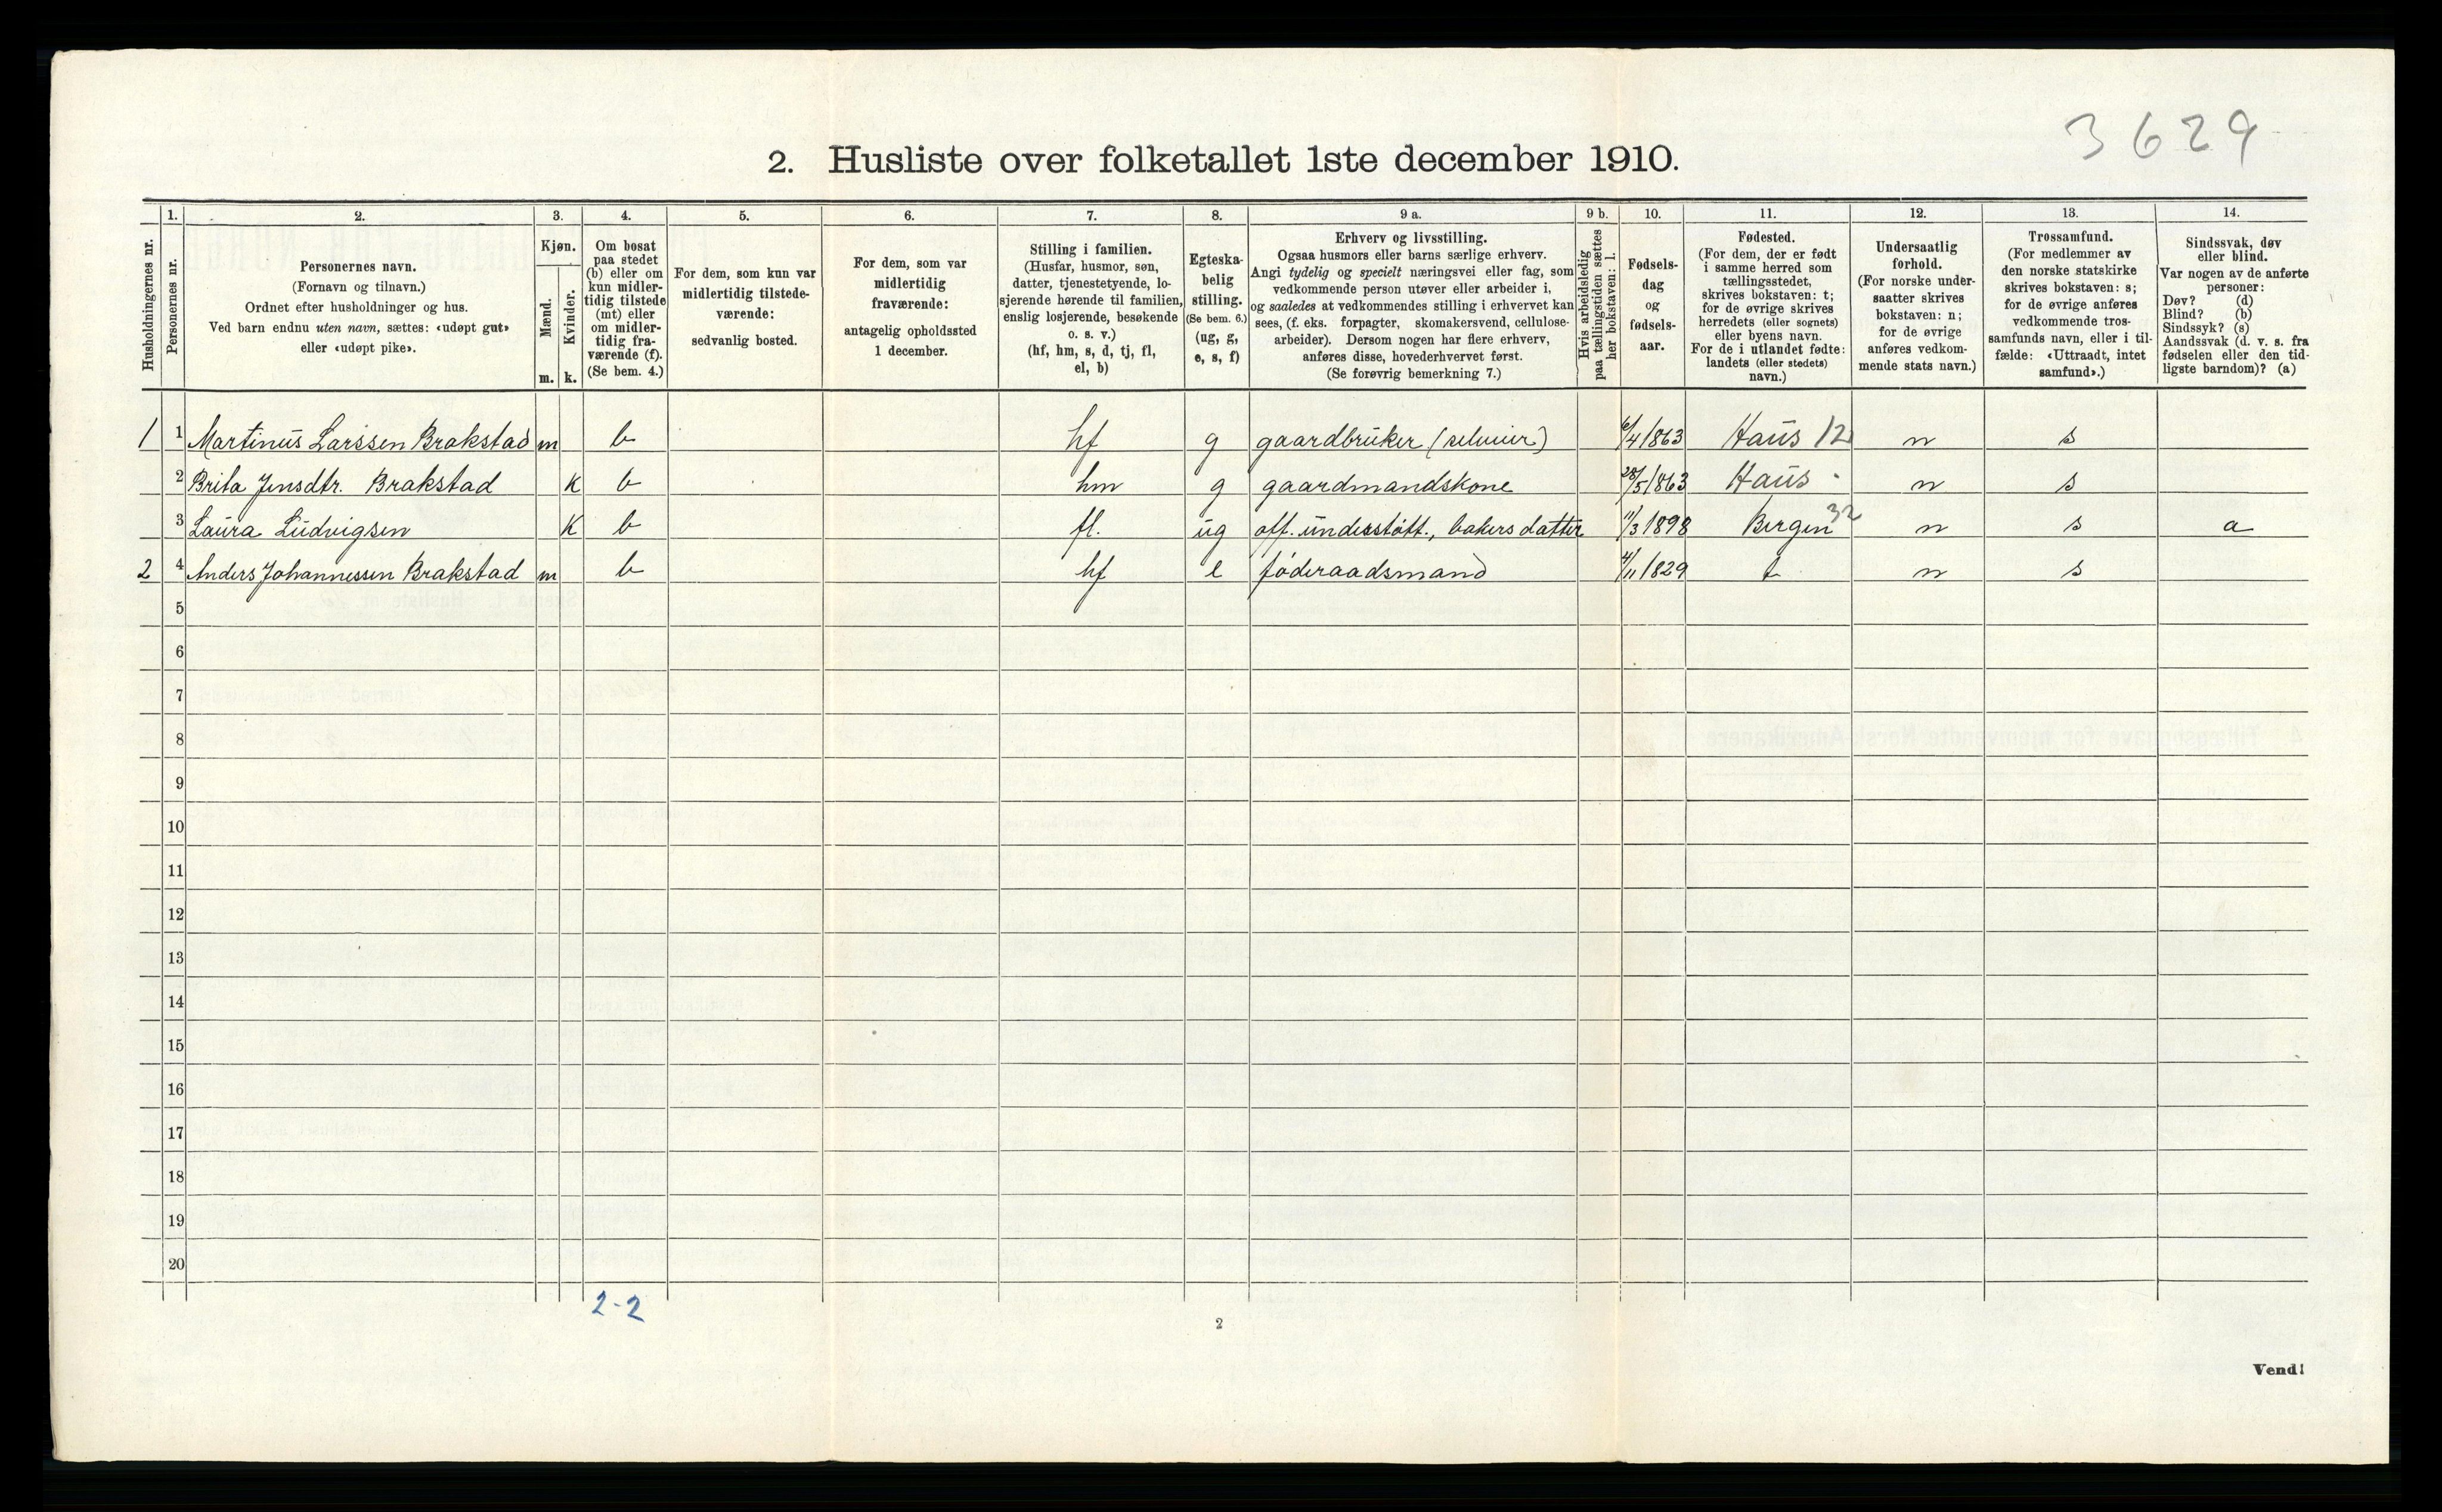 3629
2. Husliste over folketallet 1ste december 1910.
Husholdningernes nr.
1. Personernes nr.
2. Personernes navn.
(Fornavn og tilnavn.)
Ordnet efter husholdninger og hus.
Ved barn endnu uten navn, sættes: «udøpt gut»
eller «udøpt pike».
3. Kjøn.
Mænd. m.
Kvinder. k.
4. Om bosat
paa stedet
(b) eller om
kun midler-
tidig tilstede
(mt) eller
om midler-
tidig fra-
værende (f).
(Se bem. 4.)
5. For dem, som kun var
midlertidig tilstede-
værende:
sedvanlig bosted.
6. For dem, som var
midlertidig
fraværende:
antagelig opholdssted
1 december.
7. Stilling i familien.
(Husfar, husmor, søn,
datter, tjenestetyende, lo-
sjerende hørende til familien,
enslig losjerende, besøkende
o. s. v.)
(hf, hm, s, d, tj, fl,
el, b)
8. Egteska-
belig
stilling.
(Se bem. 6.)
(ug, g,
e, s, f)
9 a. Erhverv og livsstilling.
Ogsaa husmors eller barns særlige erhverv.
Angi tydelig og specielt næringsvei eller fag, som
vedkommende person utøver eller arbeider i,
og saaledes at vedkommendes stilling i erhvervet kan
sees, (f. eks. forpagter, skomakersvend, cellulose-
arbeider). Dersom nogen har flere erhverv,
anføres disse, hovederhvervet først.
(Se forøvrig bemerkning 7.)
9 b. Hvis arbeidsledig
paa tællingstiden sættes
her bokstaven: l.
10. Fødsels-
dag
og
fødsels-
aar.
11. Fødested.
(For dem, der er født
i samme herred som
tællingsstedet,
skrives bokstaven: t;
for de øvrige skrives
herredets (eller sognets)
eller byens navn.
For de i utlandet fødte:
landets (eller stedets)
navn.)
12. Undersaatlig
forhold.
(For norske under-
saatter skrives
bokstaven: n;
for de øvrige
anføres vedkom-
mende stats navn.)
13. Trossamfund.
(For medlemmer av
den norske statskirke
skrives bokstaven: s;
for de øvrige anføres
vedkommende tros-
samfunds navn, eller i til-
fælde: «Uttraadt, intet
samfund».)
14. Sindssvak, døv
eller blind.
Var nogen av de anførte
personer:
Døv? (d)
Blind? (b)
Sindssyk? (s)
Aandssvak (d. v. s. fra
fødselen eller den tid-
ligste barndom)? (a)
1 1 Martinus Larssen Brakstad m b hf g gaardbruker (selveier) 6/4 1863 Haus 12 n s
2 Brita Jensdtr. Brakstad K b hm g gaardmandskone 28/5 1863 Haus - n s
3 Laura Ludvigsen K b fl. ug off. understøtt., bakers datter 11/3 1898 Bergen 32 n s a
2 4 Anders Johannessen Brakstad m b hf e føderaadsmand 4/11 1829 t n s
5
6
7
8
9
10
11
12
13
14
15
16
17
18
19
20
2-2
2
Vend!